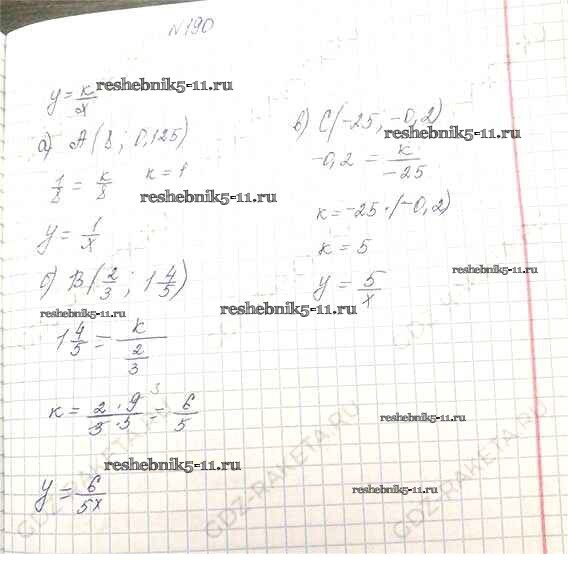 №190
y = k/x
reshebnik5-11.ru
а) A(8; 0,125)
1/8 = k/8 k = 1
reshebnik5-11.ru
y = 1/x
б) B(2/3; 1 4/5)
reshebnik5-11.ru
1 4/5 = k/(2/3)
k = (2·9)/(3·5) = 6/5
3
reshebnik5-11.ru
y = 6/5x
в) C(-25; -0,2)
reshebnik5-11.ru
-0,2 = k/-25
k = -25·(-0,2)
k = 5
reshebnik5-11.ru
y = 5/x
reshebnik5-11.ru
reshebnik5-11.ru
reshebnik5-11.ru
GDZ-RAKETA.RU
GDZ-RAKETA.RU
GDZ-RAKETA.RU